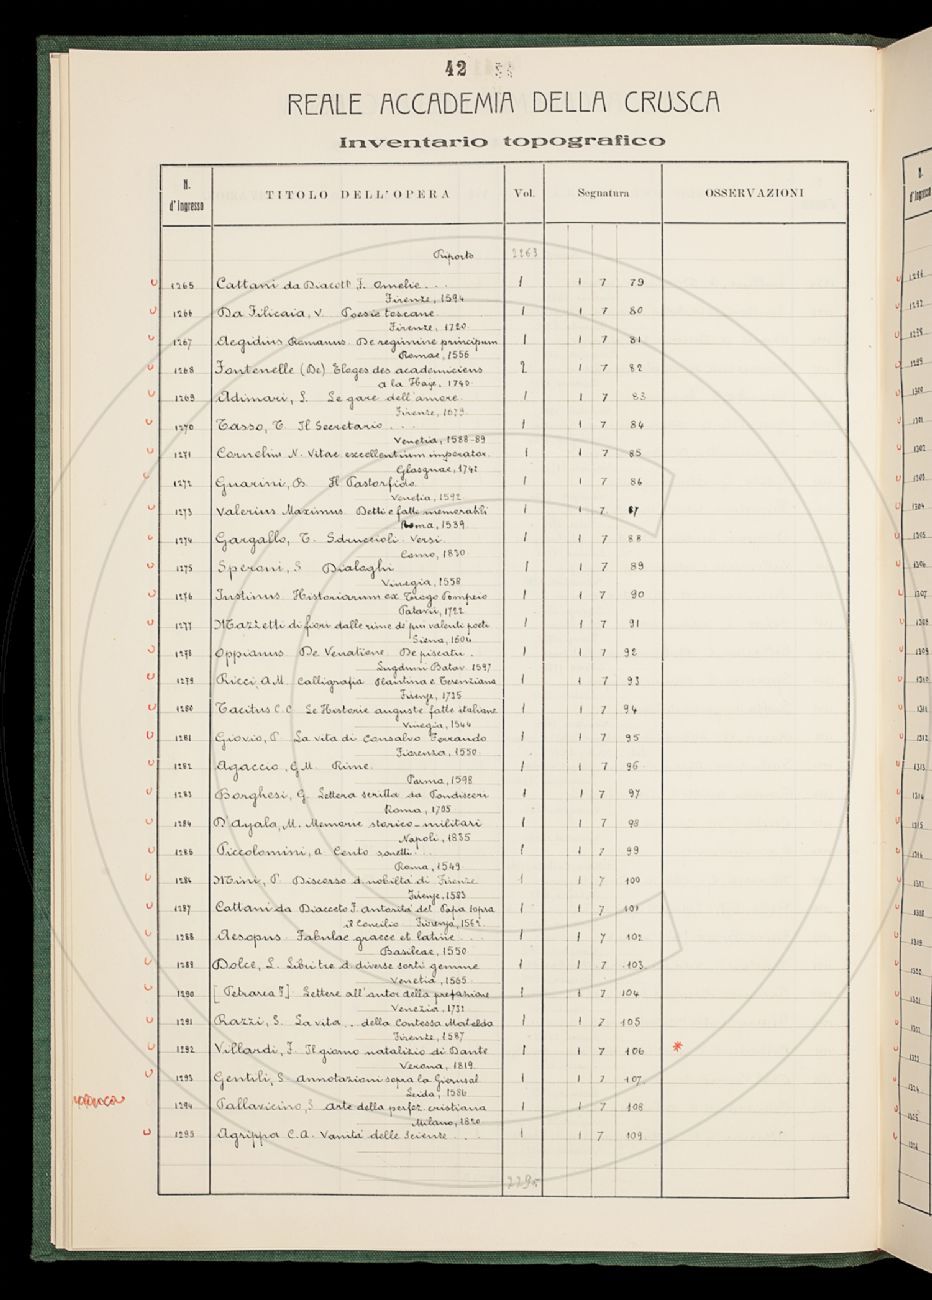 42
REALE ACCADEMIA DELLA CRUSCA
Inventario topografico
N. d'Ingresso TITOLO DELL'OPERA Vol. Segnatura OSSERVAZIONI
Riporto 2263
1265 Cattani da Diaceto F. Amelie... 1 1 7 79
Firenze, 1594
1266 Da Filicaia, V. Poesie toscane 1 1 7 80
Firenze, 1720
1267 Aegidius Romanus. De regimine principum 1 1 7 81
Romae, 1556
1268 Fontenelle (De) Eloges des academiciens 2 1 7 82
a la Haye, 1740
1269 Adimari, L. Le gare dell'amore 1 1 7 83
Firenze, 1679
1270 Tasso, T. Il Secretario... 1 1 7 84
Venetia, 1588-89
1271 Cornelius N. Vitae excellentium imperator. 1 1 7 85
Glasguae, 1741
1272 Guarini, B. Il Pastorfido 1 1 7 86
Venetia, 1592
1273 Valerius Maximus. Detti e fatti memorabili 1 1 7 87
Roma, 1539
1274 Gargallo, T. Sdruccioli versi 1 1 7 88
Como, 1830
1275 Speroni, S. Dialoghi 1 1 7 89
Vinegia, 1558
1276 Iustinus. Historiarum ex Trogo Pompeio 1 1 7 90
Patavii, 1722
1277 Mazzetti di fiori dalle rime de' più valenti poeti 1 1 7 91
Siena, 1604
1278 Oppianus. De Venatione. De piscatu. 1 1 7 92
Lugduni Batav. 1597
1279 Ricci, A.M. Calligrafia Plautina e Terenziana 1 1 7 93
Firenze, 1735
1280 Tacitus C.C. Le Historie auguste fatte italiane 1 1 7 94
Vinegia, 1544
1281 Giovio, P. La vita di Consalvo Ferrando 1 1 7 95
Fiorenza, 1550
1282 Agaccio, G.M. Rime. 1 1 7 96
Parma, 1598
1283 Borghesi, G. Lettera scritta da Pondisceri 1 1 7 97
Roma, 1705
1284 D'Ayala, M. Memorie storico-militari 1 1 7 98
Napoli, 1835
1285 Piccolomini, A. Cento sonetti... 1 1 7 99
Roma, 1549
1286 Mini, P. Discorso d. nobiltà di Firenze 1 1 7 100
Firenze, 1593
1287 Cattani da Diacceto F. Autorità del Papa sopra 1 1 7 101
il Concilio Fiorenza, 1562
1288 Aesopus. Fabulae graece et latine... 1 1 7 102
Basileae, 1550
1289 Dolce, L. Libri tre d. diverse sorti gemme 1 1 7 103
Venetia, 1565
1290 [Petrarca F.] Lettere all'autor della prefazione 1 1 7 104
Venezia, 1731
1291 Razzi, S. La vita... della Contessa Matelda 1 1 7 105
Firenze, 1587
1292 Villardi, F. Il giorno natalizio di Dante 1 1 7 106 *
Verona, 1819
1293 Gentili, S. Annotazioni sopra la Gierusal 1 1 7 107
Leida, 1586
1294 Pallavicino, S. Arte della perfez. cristiana 1 1 7 108
Milano, 1820
1295 Agrippa C.A. Vanità delle Scienze... 1 1 7 109
2295